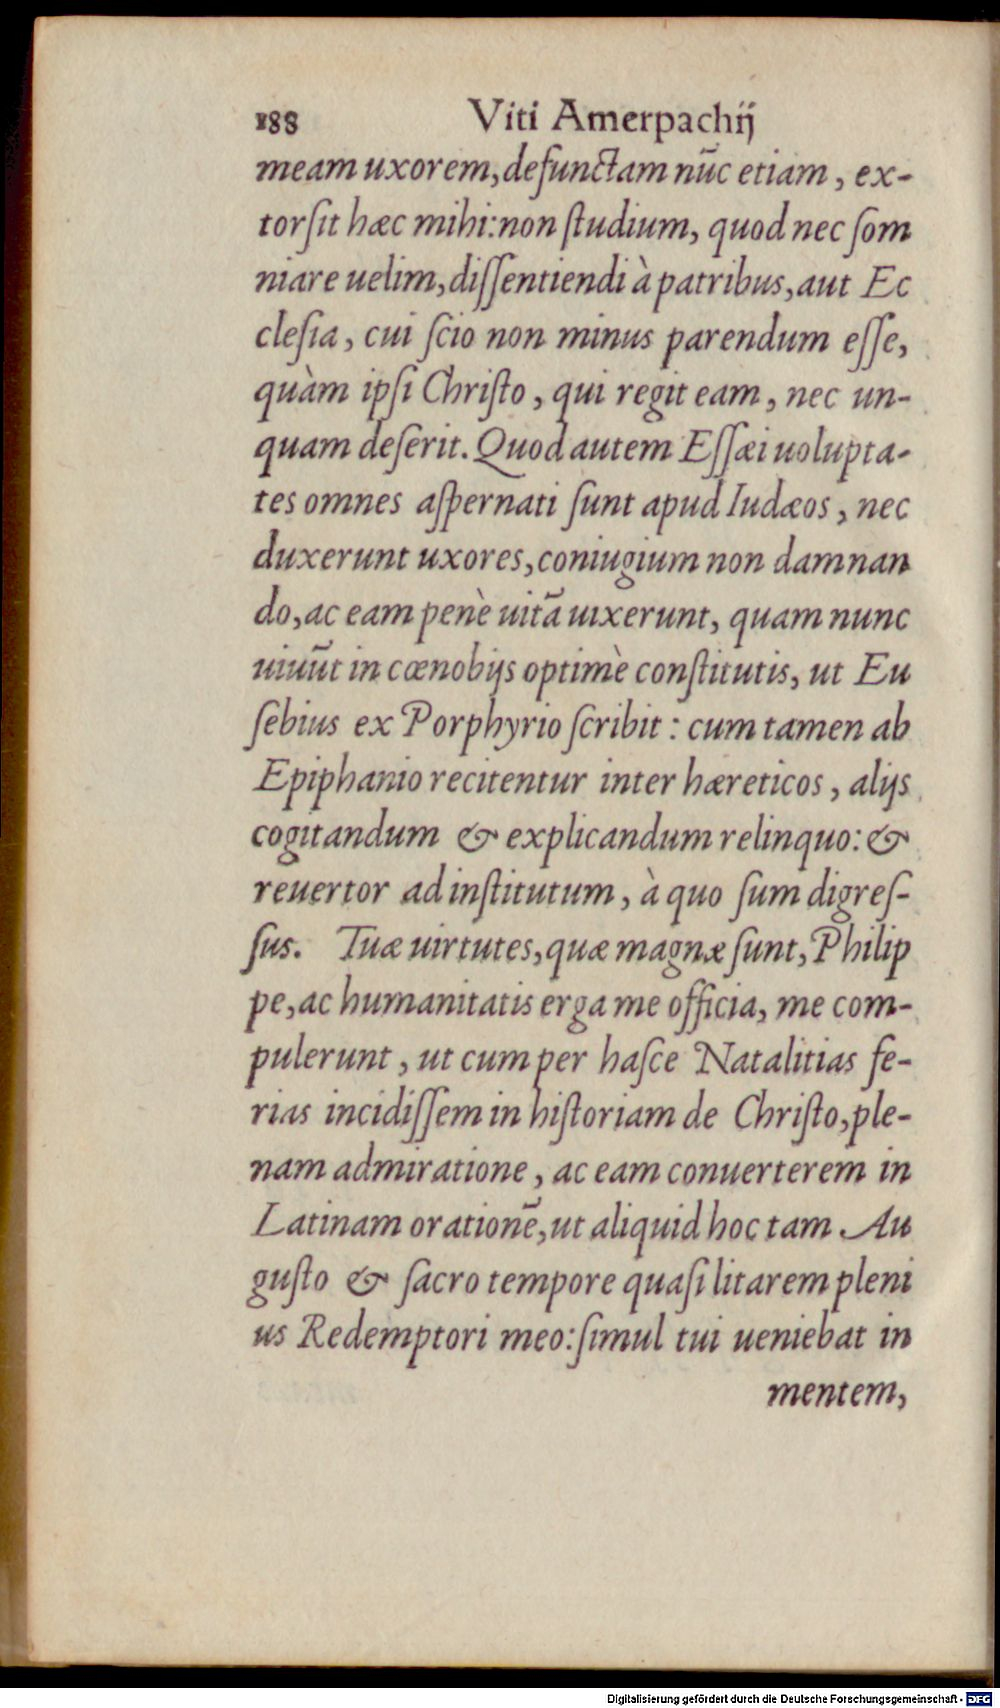 188 Viti Amerpachij
meam uxorem, defunctam nūc etiam, ex-
torſit hæc mihi: non ſtudium, quod nec ſom
niare uelim, diſſentiendi à patribus, aut Ec
cleſia, cui ſcio non minus parendum eſſe,
quàm ipſi Chriſto, qui regit eam, nec un-
quam deſerit. Quod autem Eſſæi uolupta-
tes omnes aſpernati ſunt apud Iudæos, nec
duxerunt uxores, coniugium non damnan
do, ac eam penè uitā uixerunt, quam nunc
uiuūt in cœnobijs optimè conſtitutis, ut Eu
ſebius ex Porphyrio ſcribit: cum tamen ab
Epiphanio recitentur inter hæreticos, alijs
cogitandum & explicandum relinquo: &
reuertor ad inſtitutum, à quo ſum digreſ-
ſus. Tuæ uirtutes, quæ magnæ ſunt, Philip
pe, ac humanitatis erga me officia, me com-
pulerunt, ut cum per haſce Natalitias fe-
rias incidiſſem in hiſtoriam de Chriſto, ple-
nam admiratione, ac eam conuerterem in
Latinam orationē, ut aliquid hoc tam Au
guſto & ſacro tempore quaſi litarem pleni
us Redemptori meo: ſimul tui ueniebat in
mentem,
Digitalisierung gefördert durch die Deutsche Forschungsgemeinschaft - DFG